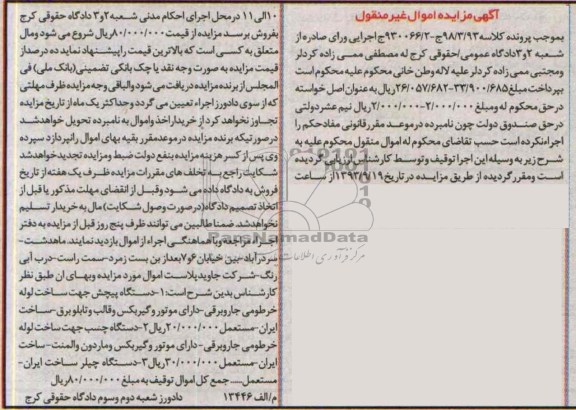 آگهی مزایده اموال غیر منقول
بموجب پرونده کلاسه ۹۸/۳/۹۳ج-۹۳۰۰۶۶/۲ج اجرایی و رای صادره از
شعبه ۲و۳دادگاه عمومی/حقوقی کرج له مصطفی ممی زاده کردلر
ومجتبی ممی زاده کردلر علیه لاله وطن خانی محکوم علیه محکوم است
بپرداخت مبلغ ۲۶/۰۵۷/۶۸۲-۳۳/۹۰۰/۶۸۵ریال به عنوان اصل خواسته
در حق محکوم له ومبلغ ۲/۰۰۰/۰۰۰-۲/۰۰۰/۰۰۰ریال نیم عشردولتی
درحق صندوق دولت چون نامبرده درموعد مقررقانونی مفادحکم را
اجراءنکرده است حسب تقاضای محکوم له اموال منقول محکوم علیه به
شرح زیر به وسیله این اجرا توقیف وتوسط کارشناس ارزیابی گردیده
است ومقررگردیده از طریق مزایده در تاریخ ۱۳۹۳/۹/۱۹از ساعت
۱۰الی۱۱ درمحل اجرای احکام مدنی شعبه۲و۳ دادگاه حقوقی کرج
بفروش برسد مزایده از قیمت ۸۰/۰۰۰/۰۰۰ریال شروع می شود ومال
متعلق به کسی است که بالاترین قیمت راپیشنهاد نماید ده درصداز
قیمت مزایده به صورت وجه نقد یا چک بانکی تضمینی(بانک ملی) فی
المجلس از برنده مزایده دریافت می شود والباقی وجه مزایده ظرف مهلتی
که ازسوی دادورز اجراء تعیین می گردد وحداکثر یک ماه از تاریخ مزایده
تجاوز نخواهد کرد از خریداراخذ واموال به نامبرده تحویل خواهدشد
درصورتیکه برنده مزایده در موعدمقرر بقیه بهای اموال رانپردازد سپرده
وی پس از کسر هزینه مزایده بنفع دولت ضبط ومزایده تجدید خواهدشد
شکایت راجع به تخلف های مقررات مزایده ظرف یک هفته از تاریخ
فروش به دادگاه داده می شود وقبل از انقضای مهلت مذکور یا قبل از
اتخاذ تصمیم دادگاه(درصورت وصول شکایت) مال به خریدار تسلیم
نخواهدشد. ضمنا طالبین می توانند ظرف پنج روز قبل از مزایده به دفتر
اجراء مراجعه وباهماهنگی اجراء از اموال بازدید نمایند. ماهدشت-
سردرآباد-بین خیابان ۶و۷بعداز بن بست زمرد-سمت راست-درب آبی
رنگ-شرکت جاوید پلاست اموال مورد مزایده وبهای ان طبق نظر
کارشناس بدین شرح است: ۱-دستگاه پیچش جهت ساخت لوله
خرطومی جاروبرقی-دارای موتور وگیربکس وقالب وتابلو برق-ساخت
ایران-مستعمل ۲۰/۰۰۰/۰۰۰ریال۲-دستگاه چسب جهت ساخت لوله
خرطومی جاروبرقی-دارای موتور وگیربکس وماردون والمنت-ساخت
ایران-مستعمل ۳۰/۰۰۰/۰۰۰ریال۳-دستگاه چیلر ساخت ایران-
مستعمل.... جمع کل اموال توقیف به مبلغ ۸۰/۰۰۰/۰۰۰ریال
م/الف ۱۳۴۴۶ دادورز شعبه دوم وسوم دادگاه حقوقی کرج
ParsNamadData